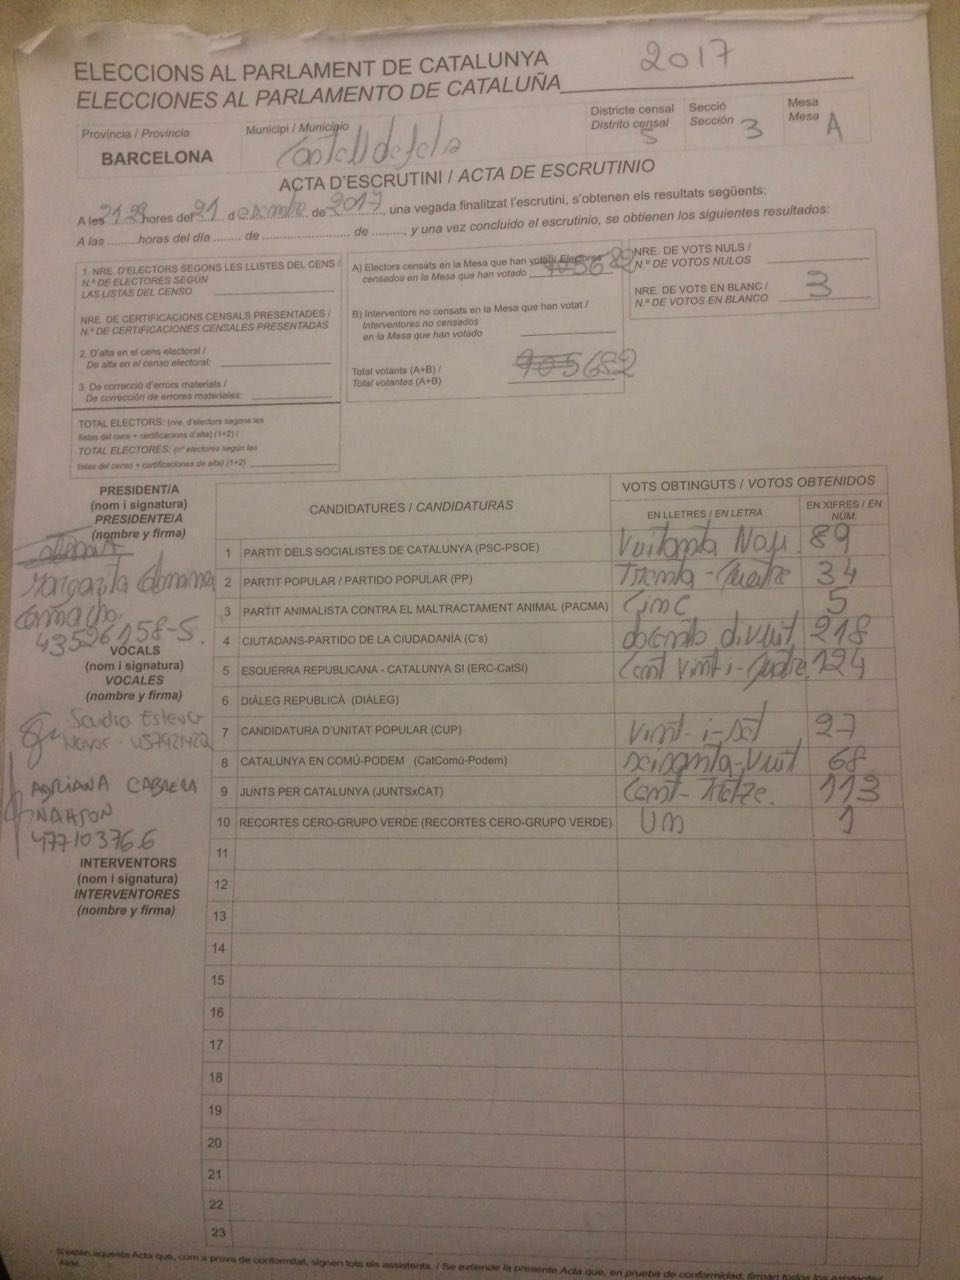 ELECCIONS AL PARLAMENT DE CATALUNYA 2017
ELECCIONES AL PARLAMENTO DE CATALUÑA
Província / Provincia
BARCELONA
Municipi / Municipio
Castelldefels
Districte censal
Distrito censal
5
Secció
Sección 3
Mesa
Mesa A
ACTA D'ESCRUTINI / ACTA DE ESCRUTINIO
A les 21.29 hores del 21 d desembre de 2017, una vegada finalitzat l'escrutini, s'obtenen els resultats següents:
A las .........horas del día ....... de ..................... de ........, y una vez concluido el escrutinio, se obtienen los siguientes resultados:
1. NRE. D'ELECTORS SEGONS LES LLISTES DEL CENS /
N.º DE ELECTORES SEGÚN
LAS LISTAS DEL CENSO
NRE. DE CERTIFICACIONS CENSALS PRESENTADES /
N.º DE CERTIFICACIONES CENSALES PRESENTADAS
2. D'alta en el cens electoral /
De alta en el censo electoral:
3. De correcció d'errors materials /
De corrección de errores materiales:
TOTAL ELECTORS: (nre. d'electors segons les
llistes del cens + certificacions d'alta) (1+2) /
TOTAL ELECTORES: (nº electores según las
listas del censo + certificaciones de alta) (1+2)
A) Electors censats en la Mesa que han votat / Electores
censados en la Mesa que han votado 705 682
B) Interventors no censats en la Mesa que han votat /
Interventores no censados
en la Mesa que han votado
Total votants (A+B) /
Total votantes (A+B) 705 682
NRE. DE VOTS NULS /
N.º DE VOTOS NULOS
NRE. DE VOTS EN BLANC /
N.º DE VOTOS EN BLANCO 3
PRESIDENT/A
(nom i signatura)
PRESIDENTE/A
(nombre y firma)
Margarita
Camacho
43526158-S.
VOCALS
(nom i signatura)
VOCALES
(nombre y firma)
ADRIANA CABRERA
47710376.6
INTERVENTORS
(nom i signatura)
INTERVENTORES
(nombre y firma)
CANDIDATURES / CANDIDATURAS
VOTS OBTINGUTS / VOTOS OBTENIDOS
EN LLETRES / EN LETRA
EN XIFRES / EN NÚM.
1 PARTIT DELS SOCIALISTES DE CATALUNYA (PSC-PSOE) Vuitanta Nou. 89
2 PARTIT POPULAR / PARTIDO POPULAR (PP) Trenta-Quatre 34
3 PARTIT ANIMALISTA CONTRA EL MALTRACTAMENT ANIMAL (PACMA) Cinc 5
4 CIUTADANS-PARTIDO DE LA CIUDADANÍA (C's) docents divuit 218
5 ESQUERRA REPUBLICANA - CATALUNYA SI (ERC-CatSí) Cent Vint-i-Quatre 124
6 DIÀLEG REPUBLICÀ (DIÀLEG)
7 CANDIDATURA D'UNITAT POPULAR (CUP) Vint-i-Set 27
8 CATALUNYA EN COMÚ-PODEM (CatComú-Podem) seixanta-Vuit 68
9 JUNTS PER CATALUNYA (JUNTSxCAT) Cent-Tretze. 113
10 RECORTES CERO-GRUPO VERDE (RECORTES CERO-GRUPO VERDE) Un 1
11
12
13
14
15
16
17
18
19
20
21
22
23
S'estén aquesta Acta que, com a prova de conformitat, signen tots els assistents. / Se extiende la presente Acta que, en prueba de conformidad, firman todos los asistentes